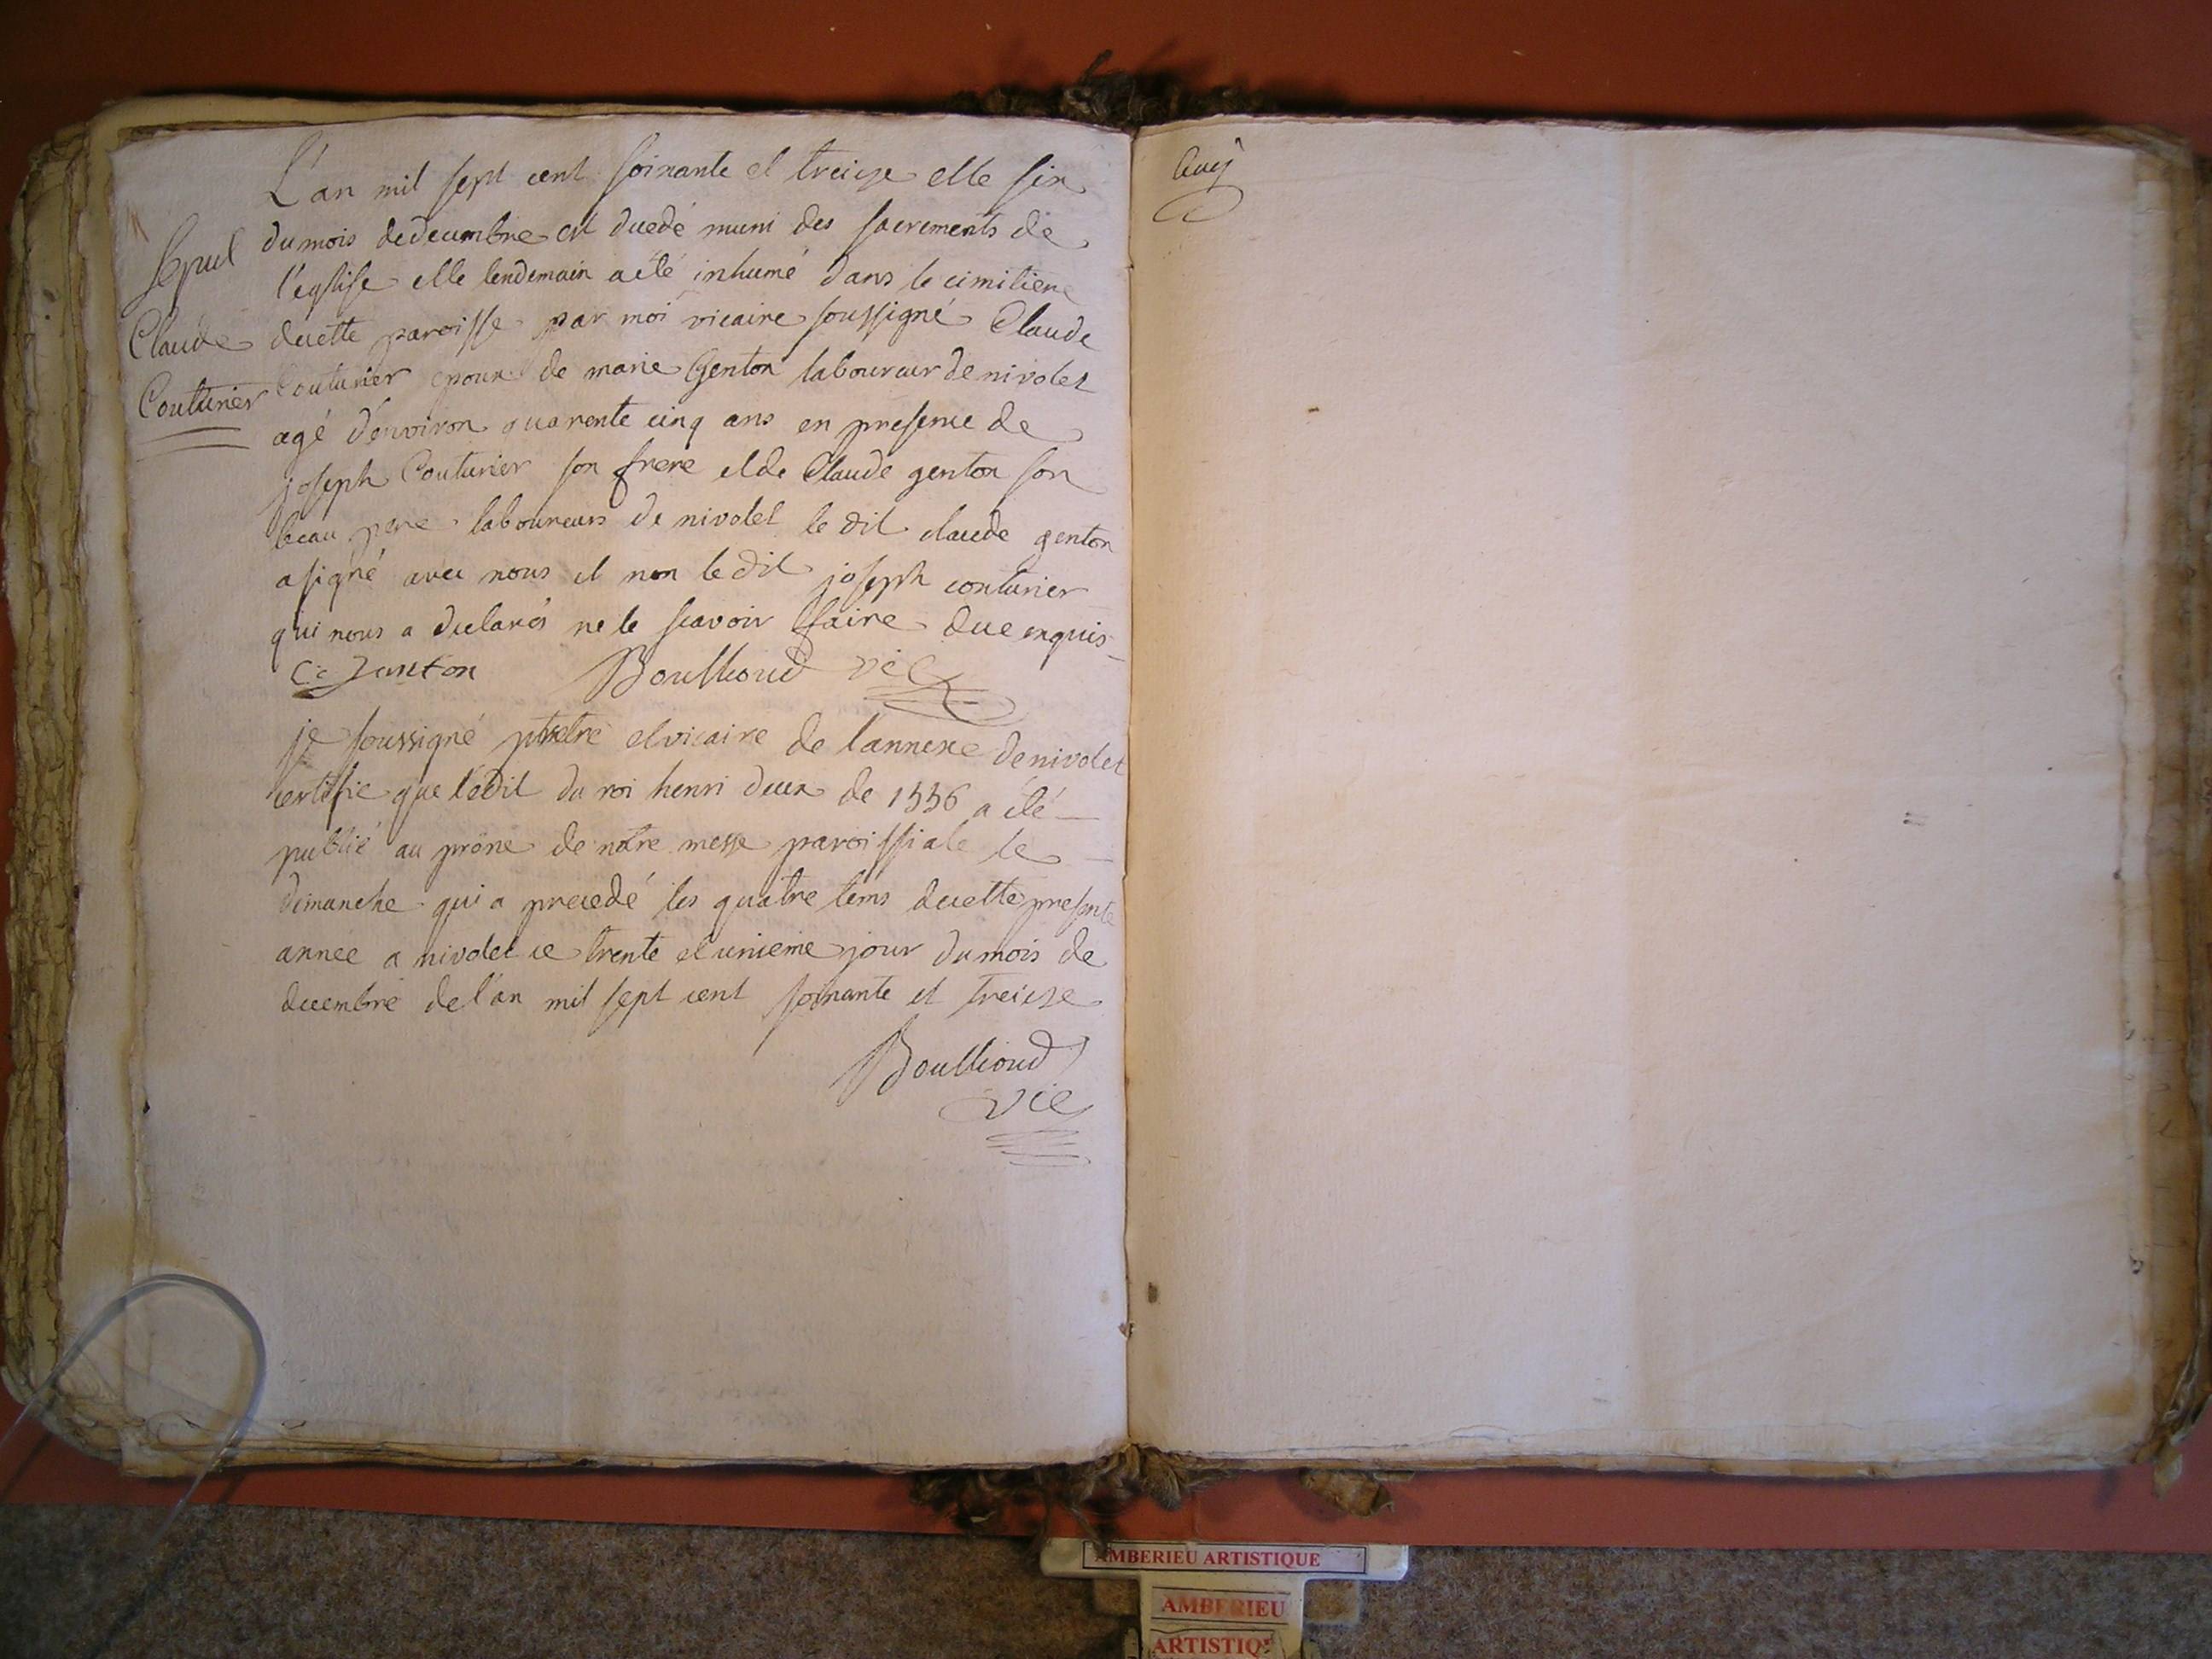 L'an mil sept cent soixante et treize et le six
du mois de decembre est decedé muni des sacrements de
l'eglise et le lendemain a été inhumé dans le cimitiere
de cette paroisse par moi vicaire soussigné Claude
Couturier epoux de marie Genton laboureur de nivolet
agé d'environ quarente cinq ans en presence de
joseph Couturier son frere et de Claude genton son
beau pere laboureurs de nivolet le dit claude genton
a signé avec nous et non le dit joseph couturier
qui nous a declarés ne le scavoir faire de ce enquis
Sepul
Claude
Couturier
C: Janton Boullioud vic
je soussigné pretre et vicaire de l'annexe de nivolet
certifie que l'edit du roi henri deux de 1556 a été
publié au prône de notre messe paroissiale le
dimanche qui a precedé les quatre tems de cette presente
année a nivolet ce trente et unieme jour du mois de
decembre de l'an mil sept cent soixante et treize
Boullioud
vic
AMBERIEU ARTISTIQUE
AMBERIEU
ARTISTIQ